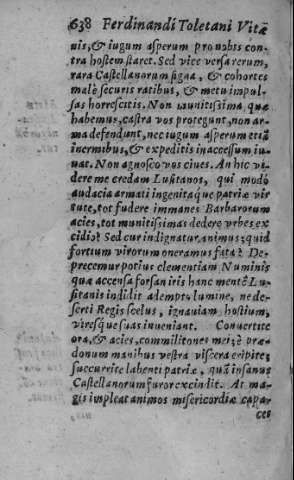 638 Ferdinandi Toletani Vitæ
uis, & iugum asperum pro nobis con-
tra hostem staret. Sed vice versa rerum,
rara Castellanorum signa, & cohortes
malè securis ratibus, & metu impul-
sas horrescitis. Non munitissima quæ
habemus, castra vos protegunt, non ar-
ma defendunt, nec iugum asperum etiã
inermibus, & expeditis inaccessum iu-
uat. Non agnosco vos ciues. An hic vi-
dere me credam Lusitanos, qui modò
audacia armati ingenitaque patriæ vir
tute, tot fudere immanes Barbarorum
acies, tot munitissimas dedere vrbes ex
cidio? Sed cur indignatur animus; quid
fortium virorum oneramus fata? De-
precemur potius clementiam Numinis
quæ accensa forsan iris hanc mentẽ Lu-
sitanis indidit adempto lumine, ne de-
serti Regis scelus, ignauiam hostium,
viresque suas inueniant. Conuertite
ora, & acies, commilitones mei; è præ-
donum manibus vestra viscera eripite;
succurrite labenti patriæ, quã insanus
Castellanorum furor excindit. At ma-
gis impleat animos misericordiæ capar
ces